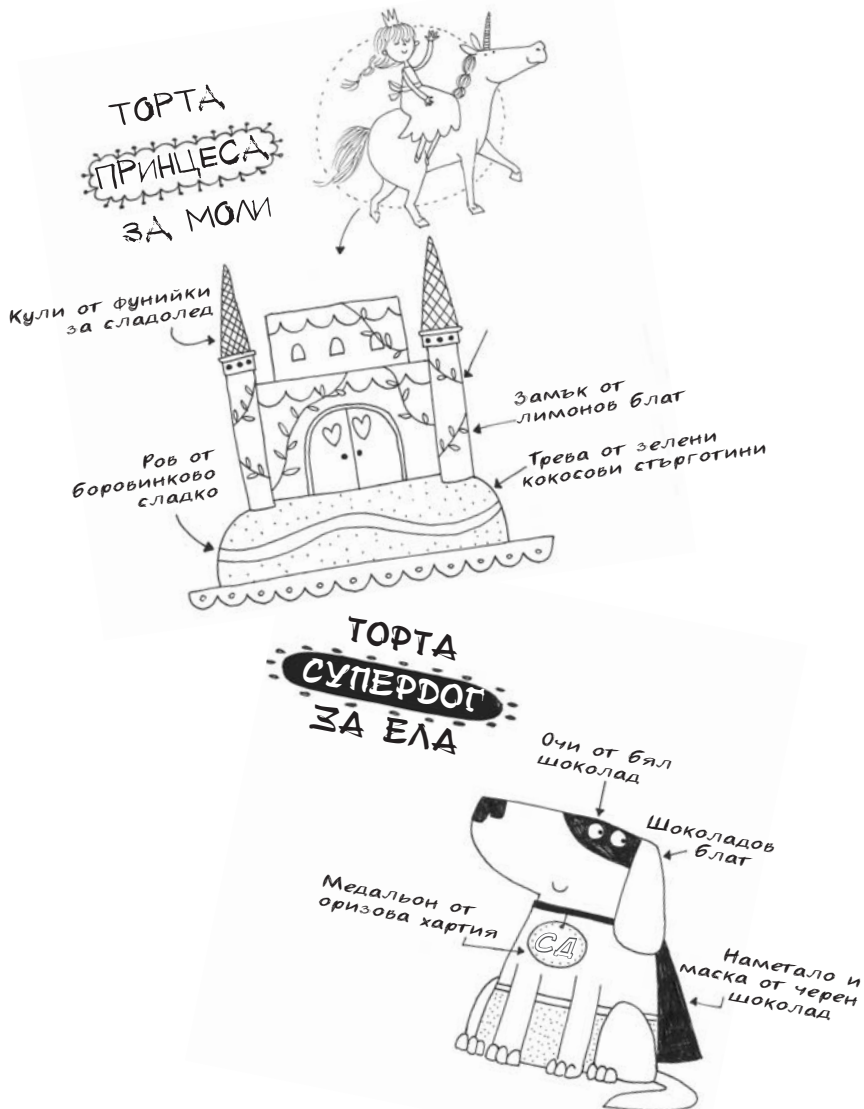 ТОРТА
ПРИНЦЕСА
ЗА МОЛИ
Кули от фунийки
за сладолед
Замък от
лимонов блат
Трева от зелени
кокосови стърготини
Ров от
боровинково
сладко
ТОРТА
СУПЕРДОГ
ЗА ЕЛА
Очи от бял
шоколад
Шоколадов
блат
Медальон от
оризова хартия
СД
Наметало и
маска от черен
шоколад